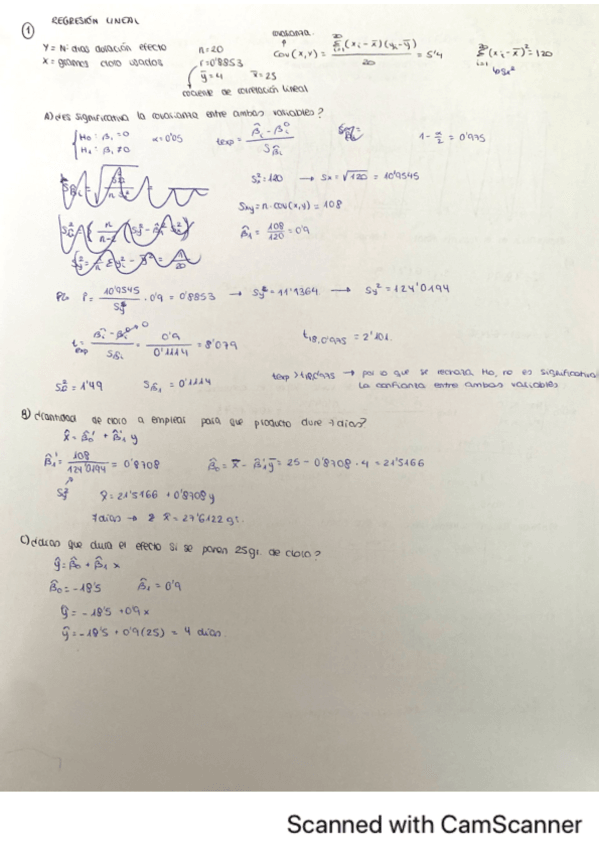 ① REGRESIÓN LINEAL
Y = Nº dias duración efecto n=20 covarianza Cov(x,y) = Σ(xi - x̄)(yi - ȳ) / 20 = 5'4 Σ(xi - x̄)² = 120
X = gramos cloro usados r=0'8853
ȳ=4 x̄=25
coeciente de correlación lineal
A) ¿es significativa la covarianza entre ambas variables?
H0: β1 = 0 α=0'05 texp = β̂i - βi⁰ / Sβ̂i 1 - α/2 = 0'975
H1: β1 ≠ 0
Sx² = 120 → Sx = √120 = 10'9545
Sxy = n · cov(x,y) = 108
β̂1 = 108/120 = 0'9
r = 10'9545 / Sy · 0'9 = 0'8853 → Sy = 11'1364 → Sy² = 124'0194
t exp = β̂i - βi⁰ / Sβ̂i = 0'9 / 0'1114 = 8'079 t18,0'975 = 2'101
SR² = 1'49 Sβ̂1 = 0'1114 texp > t18,0'975 → por lo que se rechaza H0, no es significativa
la confianza entre ambas variables
B) ¿cantidad de cloro a emplear para que producto dure 7 dias?
x̂ = β̂0' + β̂1' y
β̂1' = 108 / 124'0194 = 0'8708 β̂0 = x̄ - β̂1' ȳ = 25 - 0'8708 · 4 = 21'5166
Sy² x̂ = 21'5166 + 0'8708 y
7 dias → x̂ = 27'6122 gr.
C) ¿dias que dura el efecto si se ponen 25 gr. de cloro?
ŷ = β̂0 + β̂1 x
β̂0 = -18'5 β̂1 = 0'9
ŷ = -18'5 + 0'9 x
ŷ = -18'5 + 0'9 (25) = 4 dias.
Scanned with CamScanner